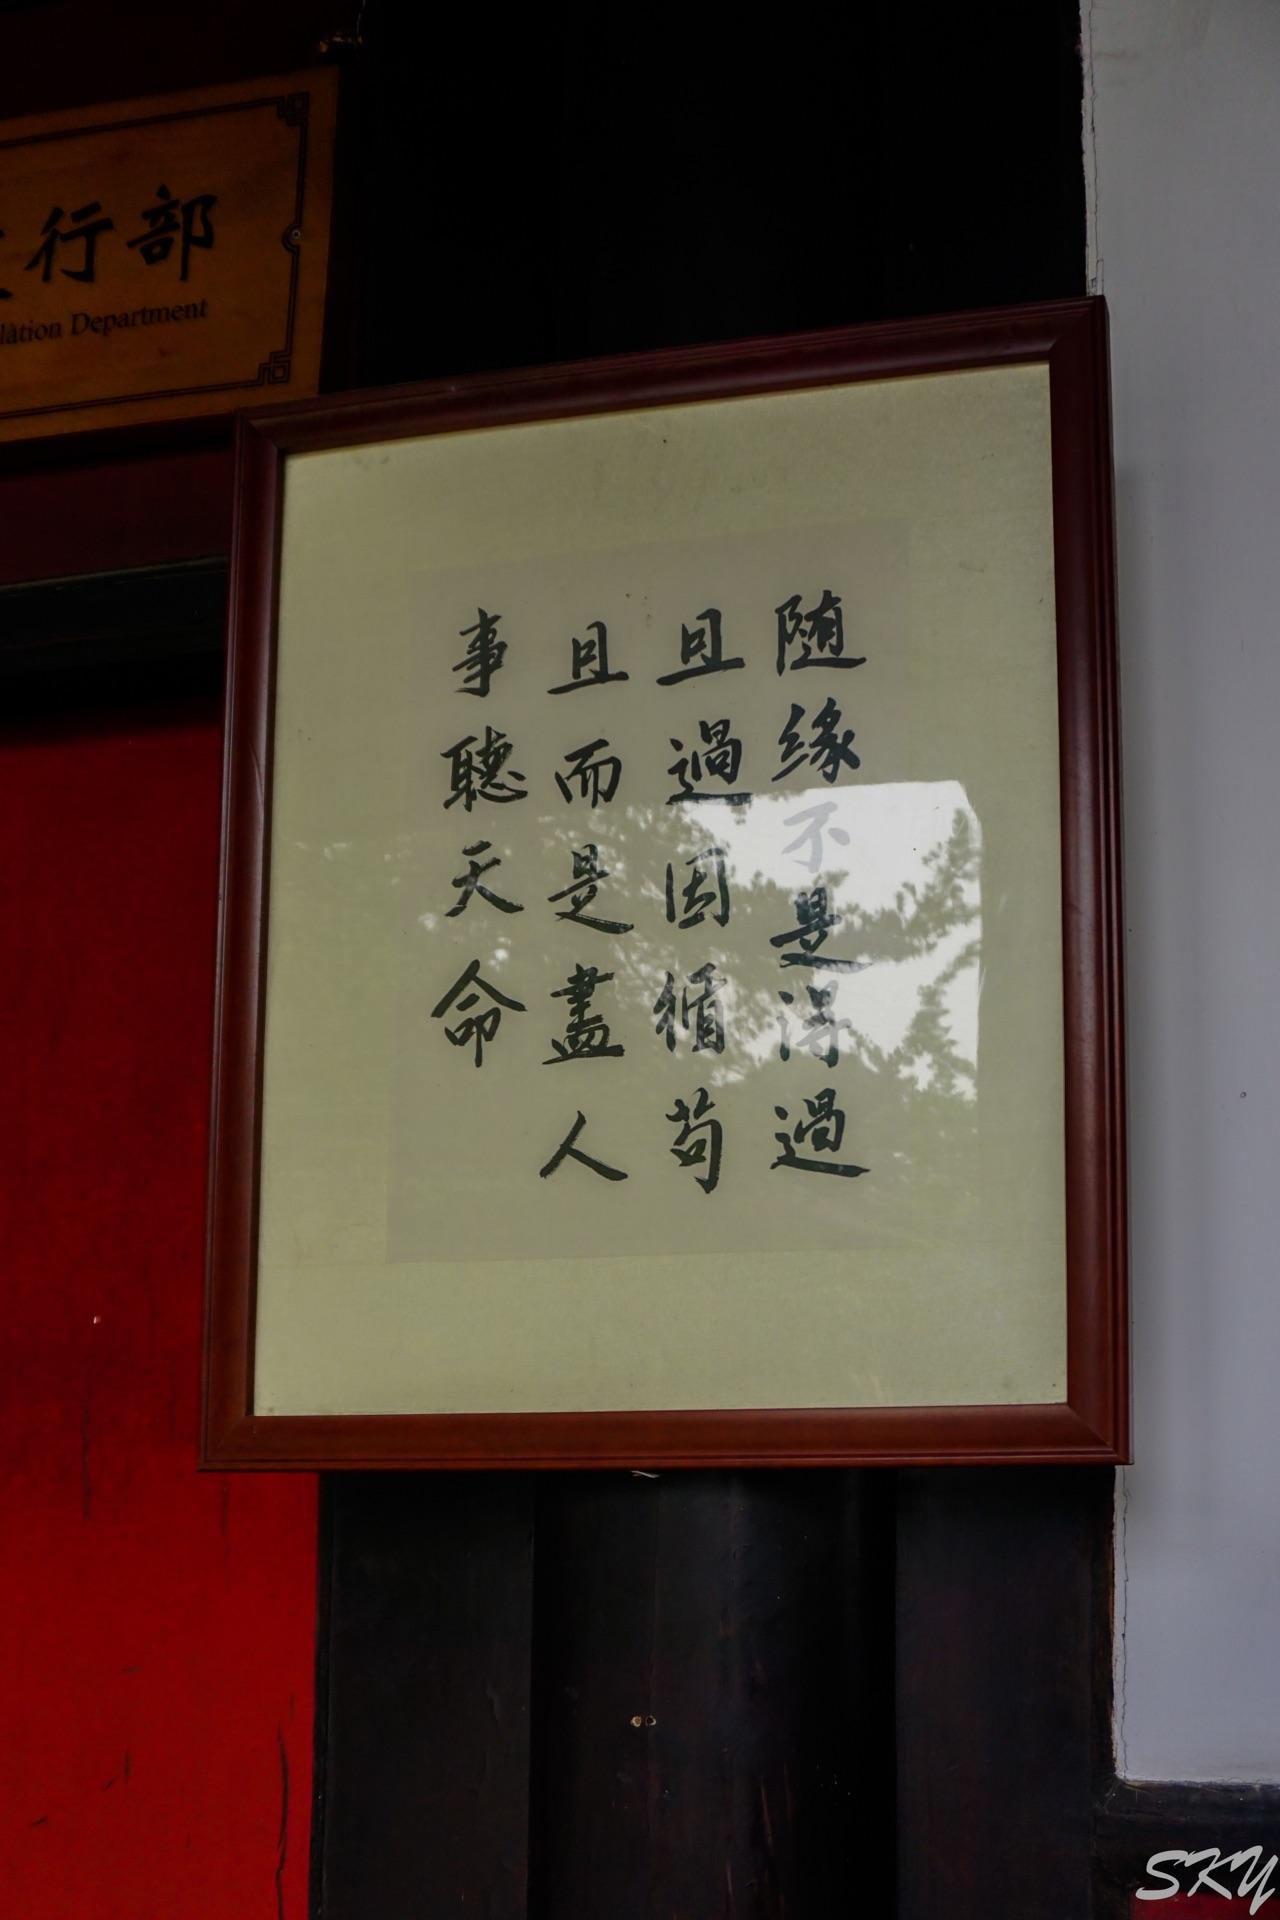 行部
Department
随缘不是得過
且過因循苟
且而是盡人
事聽天命
SKY